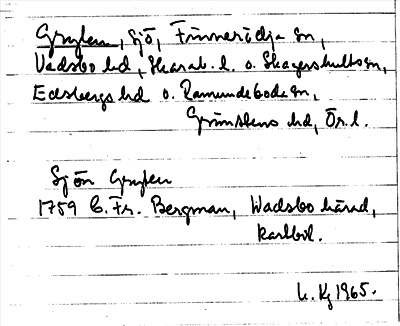 Gryten, sjö, Finnerödja sn,
Vadsbo hd, Skarab. l. o. Skagershults sn,
Edsbergs hd o. Ramundeboda sn,
Grimstens hd, Ör. l.
Sjön Gryten
1759 C. Fr. Bergman, Wadsbo härad,
kartbil.
1965.